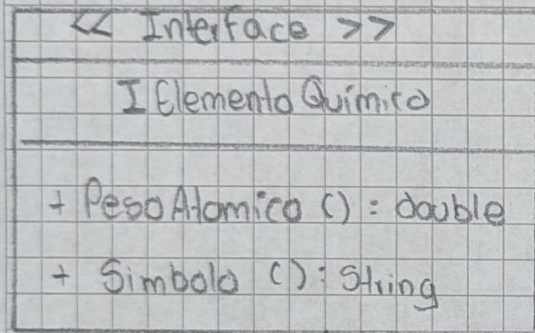 << Interface >>
IElementoQuímico
+ PesoAtomico () : double
+ Simbolo () : String